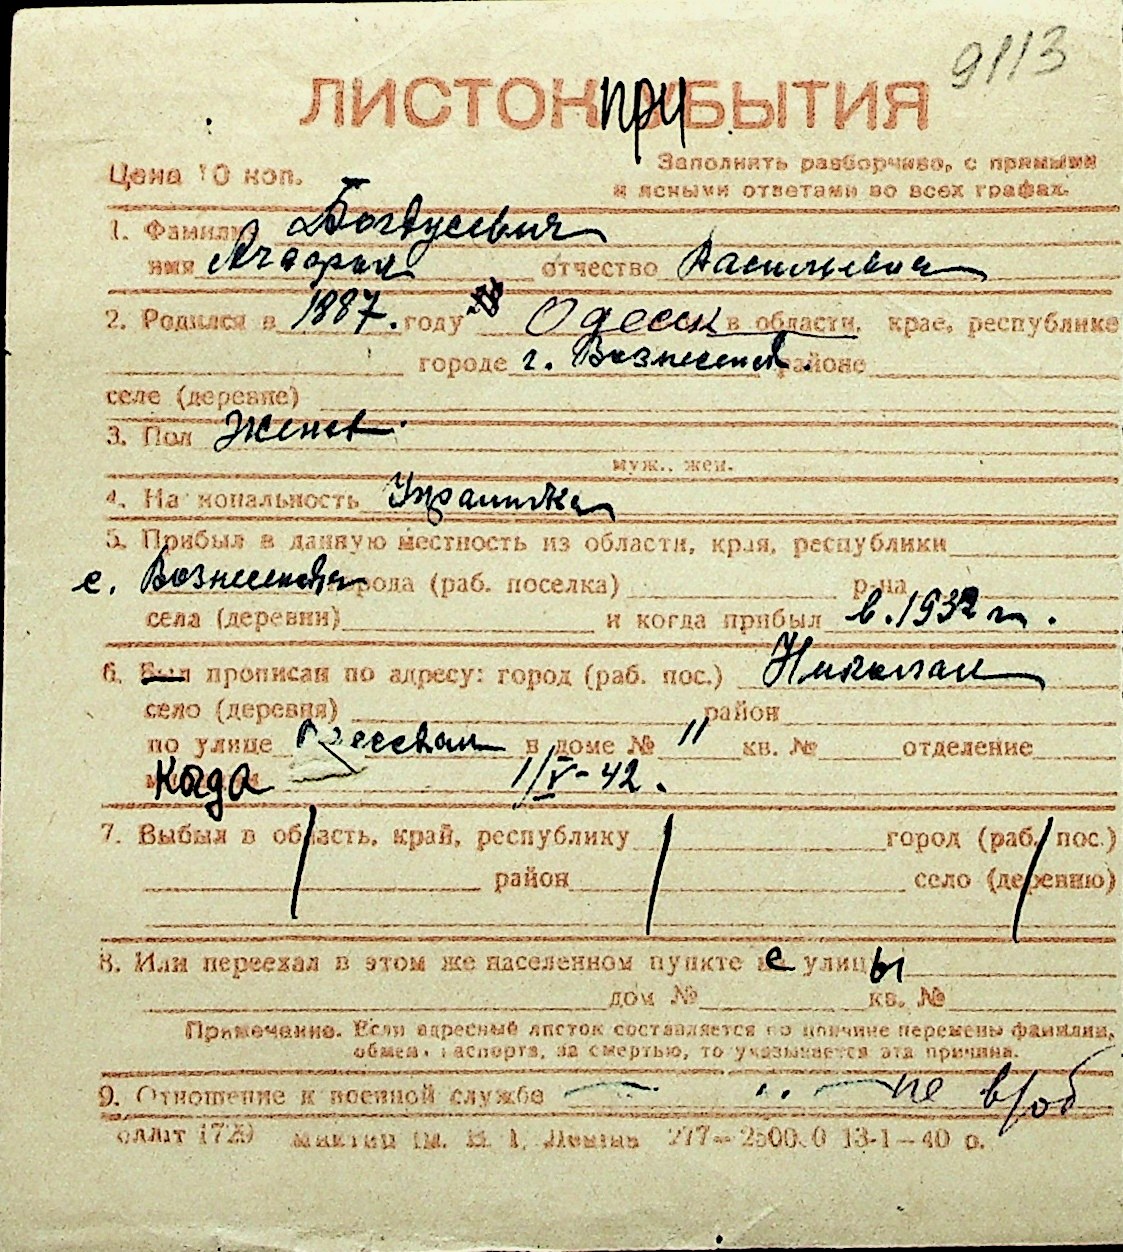 9113
ЛИСТОК ПРИБЫТИЯ
Цена 10 коп.
Заполнять разборчиво, с прямыми
и ясными ответами во всех графах.
1. Фамилия Богдусевич
имя отчество Васильевна
2. Родился в 1887. году Одесск в области, крае, республике
городе г. Вознесенск. районе
селе (деревне)
3. Пол Женск.
муж., жен.
4. Национальность Украинка
5. Прибыл в данную местность из области, края, республики
с. Вознесенска города (раб. поселка) р-на
села (деревни) и когда прибыл в. 1932 г.
6. Был прописан по адресу: город (раб. пос.) Николаев
село (деревня) район
по улице Одесская в доме № 11 кв. № отделение
Когда 1/V-42.
7. Выбыл в область, край, республику город (раб. пос.)
район село (деревню)
8. Или переехал в этом же населенном пункте с улицы
дом № кв. №
Примечание. Если адресный листок составляется по причине перемены фамилии,
обмена паспорта, за смертью, то указывается эта причина.
9. Отношение к военной службе — не в/об
им. В. И. Ленина 277—25000.0 13-1—40 р.